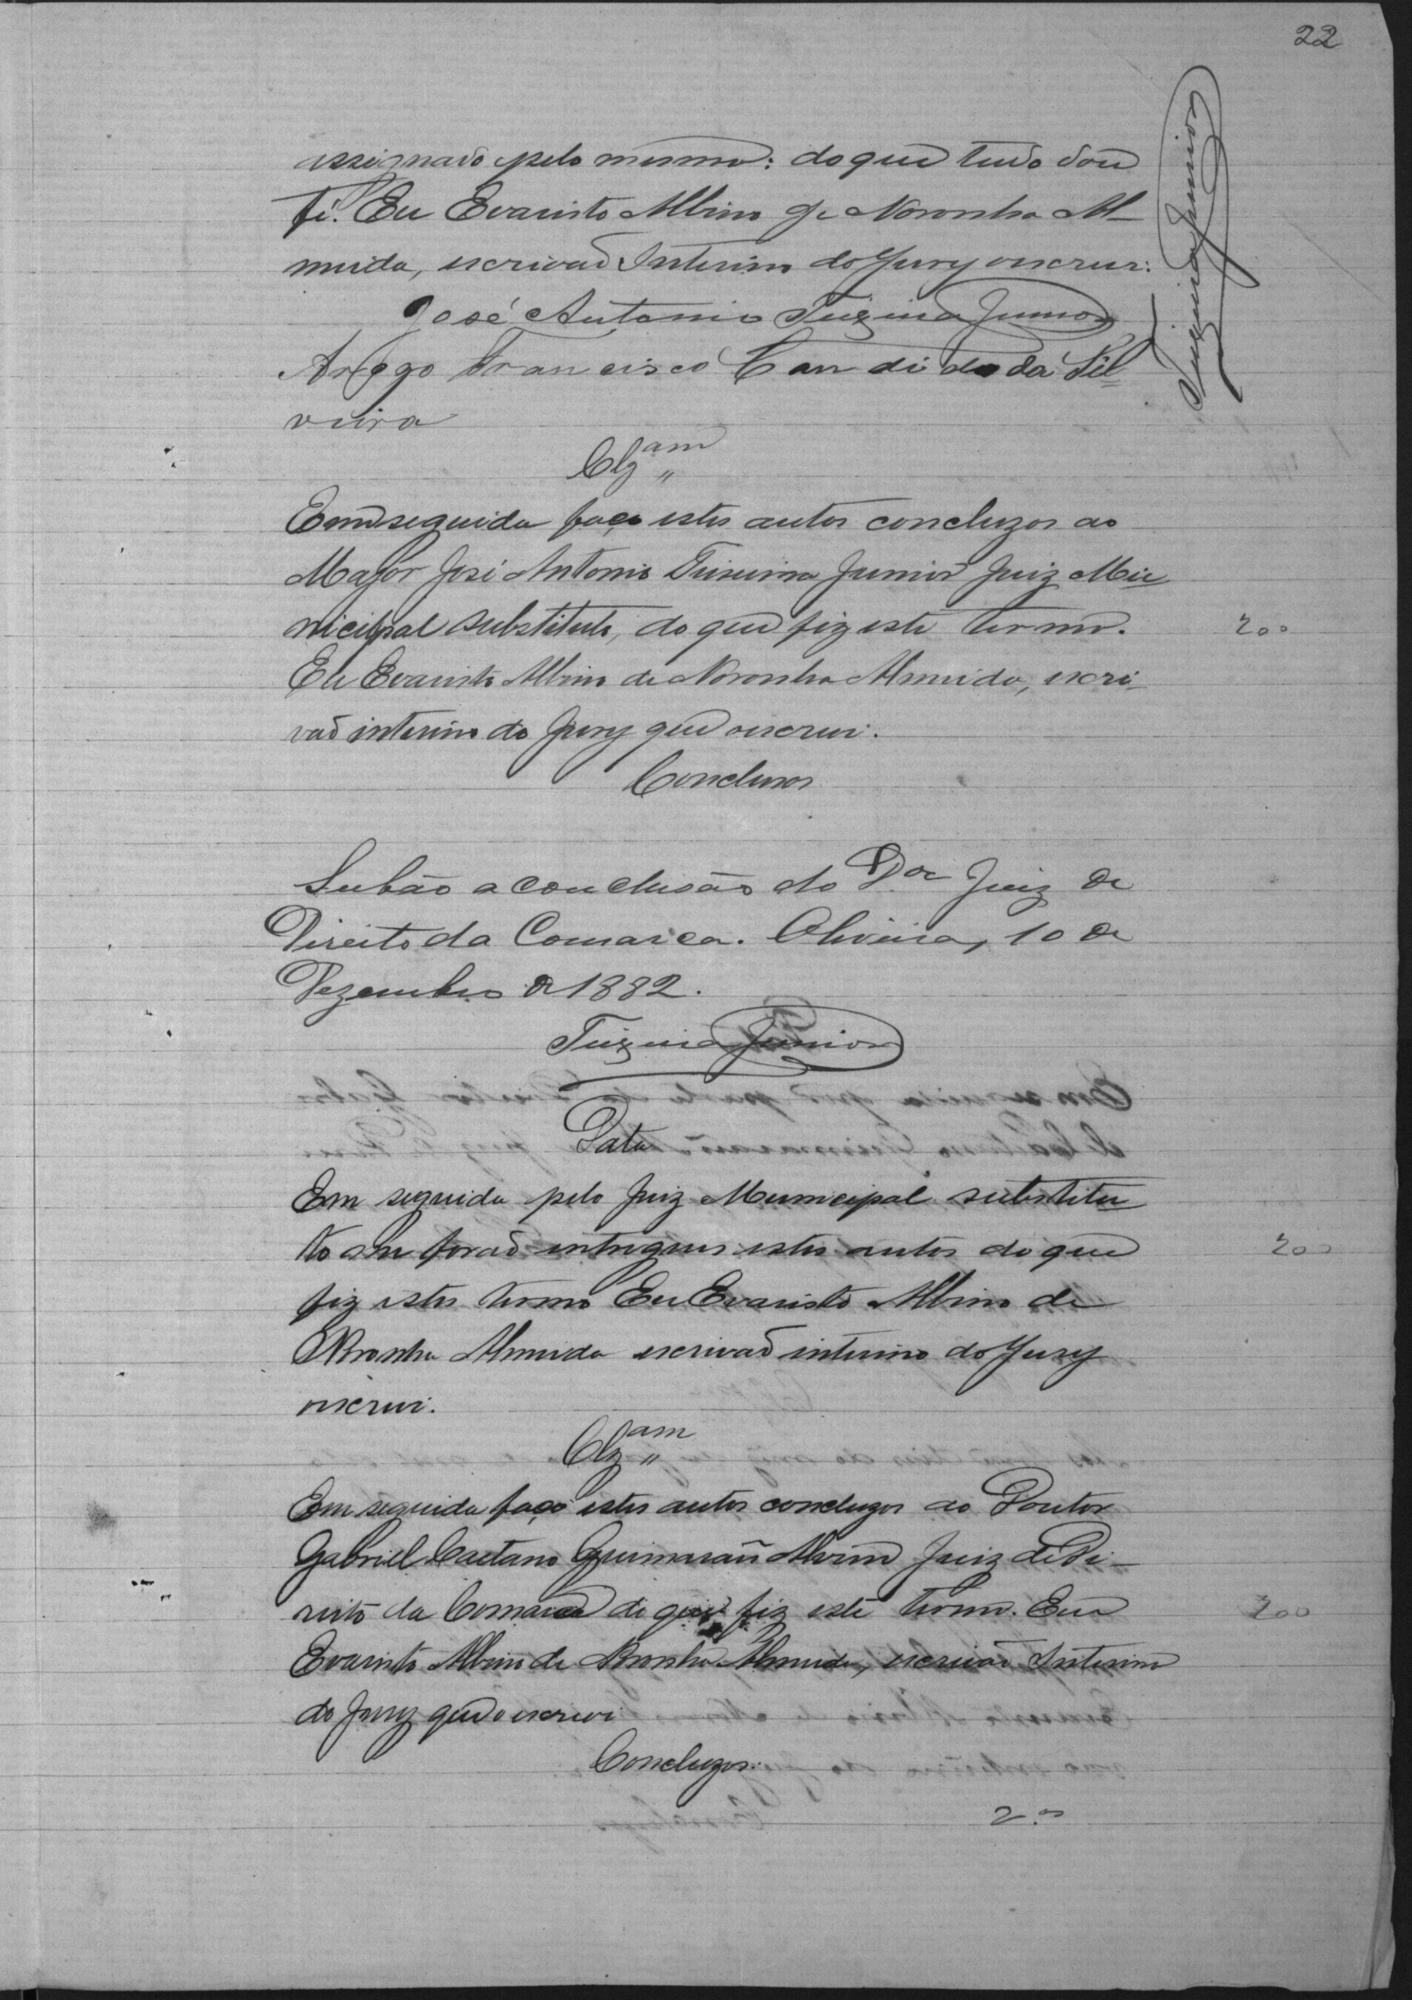 22
Teixeira Junior
assignado pelo mesmo: do que tudo dou
fé. Eu Evaristo Albino de Noronha Al-
meida, escrivaõ Interino do Jury oescrevi:
José Antonio Teixeira Junior
Arogo Francisco Candido da Sil=
veira
Clz am
Em seguida faço estes autos concluzos ao
Major José Antonio Teixeira Junior Juiz Mu
nicipal substituto, do que fiz este termo.
200
Eu Evaristo Albino de Noronha Almeida, escri-
vaõ interino do Jury que oescrevi.
Conclusos
Subão a conclusão do Dor Juiz de
Direito da Comarca. Oliveira, 10 de
Dezembro de 1882.
Teixeira Junior
Data
Em seguida pelo Juiz Municipal substitu
to me foraõ entregues estes autos do que
200
fiz este termo Eu Evaristo Albino de
Noronha Almeida escrivaõ interino do Jury
oescrevi.
Clz am
Em seguida faço estes autos concluzos ao Doutor
Gabriel Caetano Guimarañ Alvim Juiz de Di-
reito da Comarca do que fiz este termo. Eu
200
Evaristo Albino de Noronha Almeida, escrivaõ Interino
do Jury que oescrevi
Concluzos.